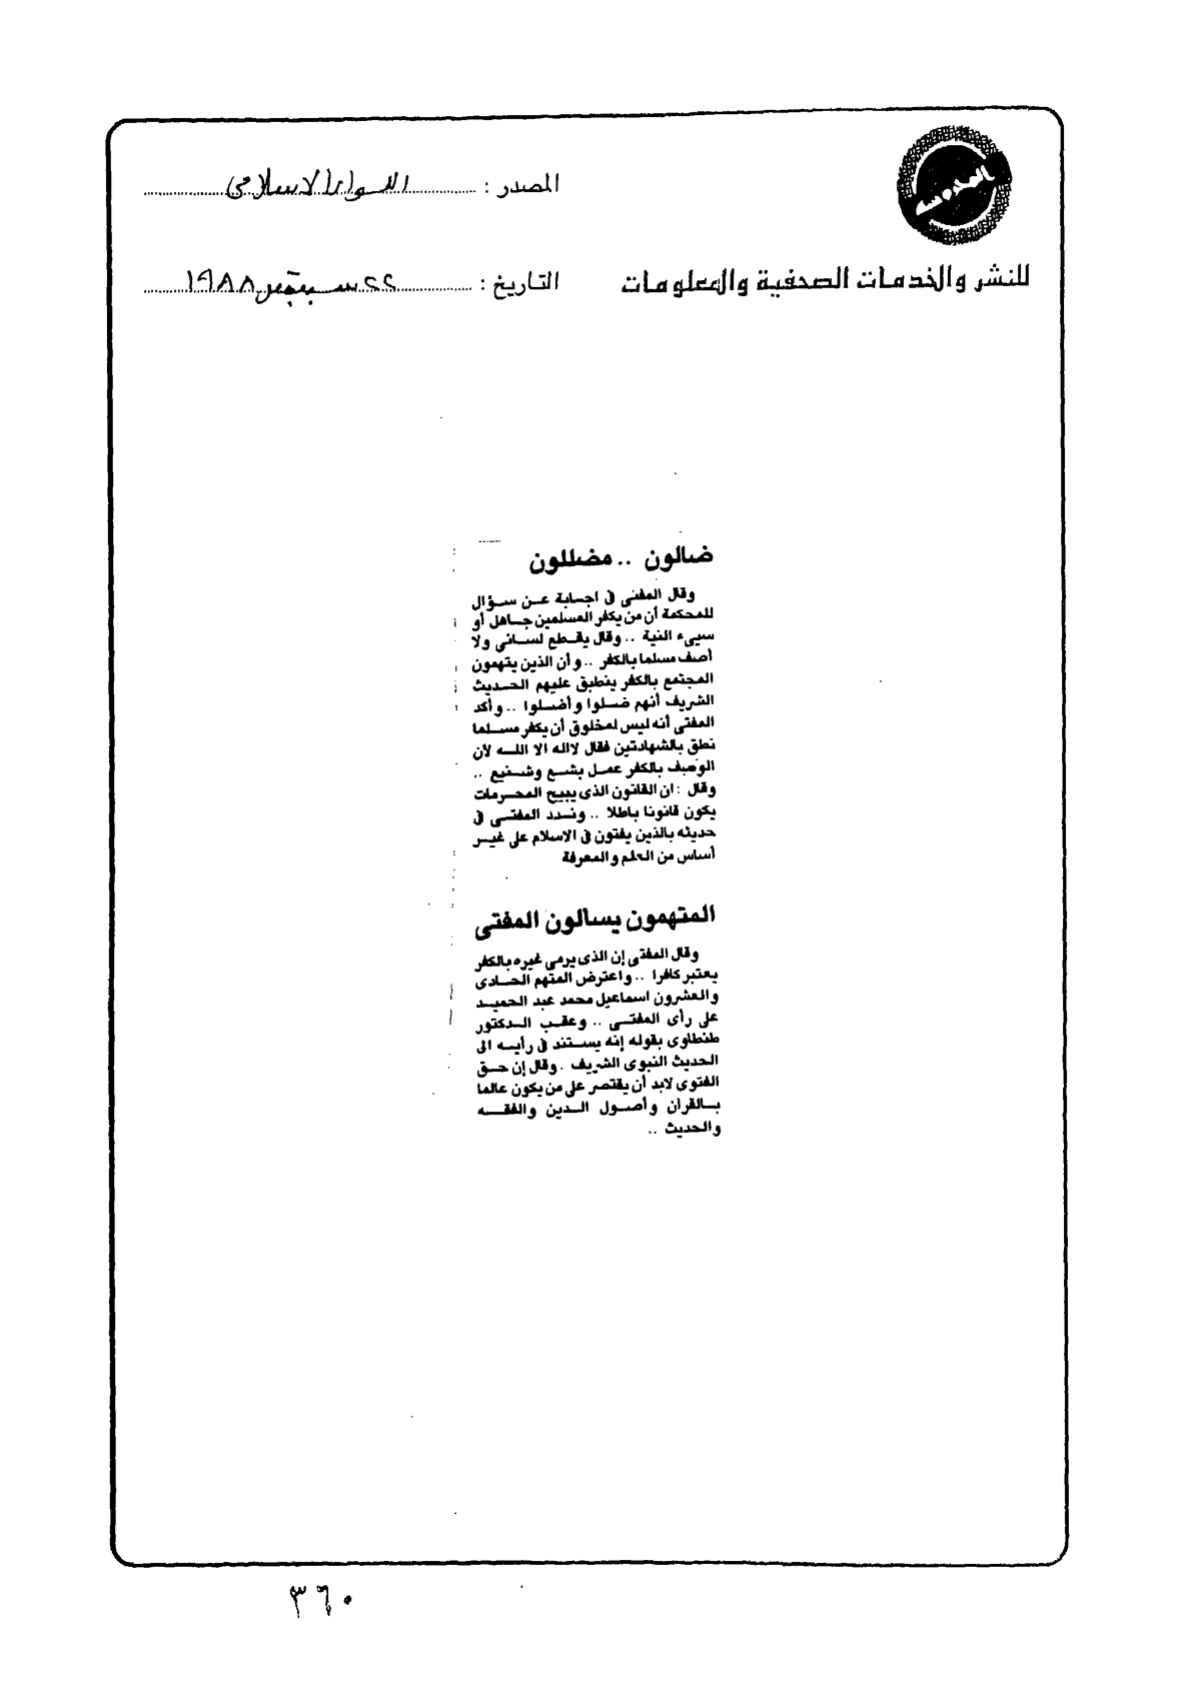 المصدر : اللواء الاسلامى
للنشر والخدمات الصحفية والمعلومات
التاريخ : ٢٢ سبتمبر ١٩٨٨
ضالون .. مضللون
وقال المفتى فى اجابة عن سؤال
للمحكمة أن من يكفر المسلمين جاهل أو
سيىء النية .. وقال يقطع لسانى ولا
أصف مسلما بالكفر .. وأن الذين يتهمون
المجتمع بالكفر ينطبق عليهم الحديث
الشريف أنهم ضلوا وأضلوا .. وأكد
المفتى أنه ليس لمخلوق أن يكفر مسلما
نطق بالشهادتين فقال لااله الا الله لأن
الوصف بالكفر عمل بشع وشنيع ..
وقال : ان القانون الذى يبيح المحرمات
يكون قانونا باطلا .. وندد المفتى فى
حديثه بالذين يفتون فى الاسلام على غير
أساس من العلم والمعرفة
المتهمون يسالون المفتى
وقال المفتى إن الذى يرمى غيره بالكفر
يعتبر كافرا .. واعترض المتهم الحادى
والعشرون اسماعيل محمد عبد الحميد
على رأى المفتى .. وعقب الدكتور
طنطاوى بقوله إنه يستند فى رأيه الى
الحديث النبوى الشريف . وقال إن حق
الفتوى لابد أن يقتصر على من يكون عالما
بالقران وأصول الدين والفقه
والحديث ..
٣٦٠